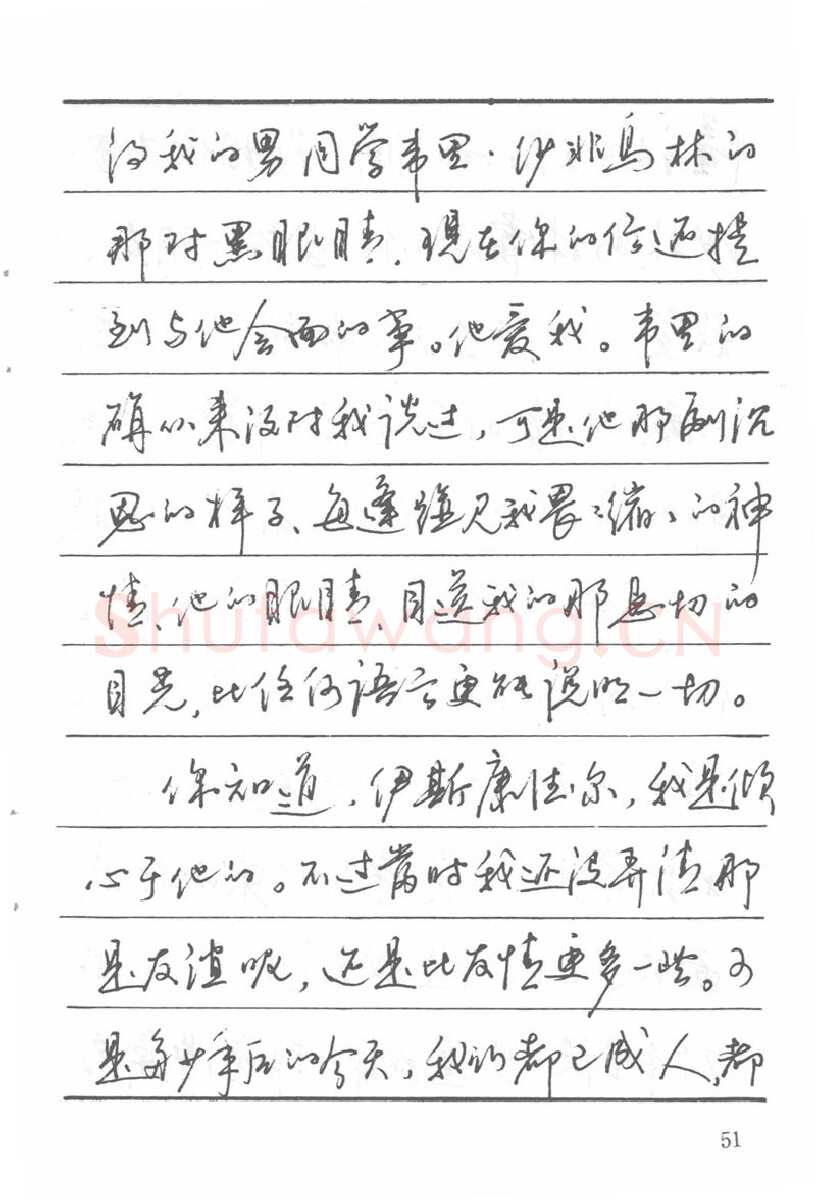 的我的男同学韦里·沙非乌林的
那对黑眼睛，现在你的信还提
到与他会面的事。他爱我。韦里的
确从来没对我谈过，可是他那副沉
思的样子、每逢碰见我畏畏缩缩的神
情、他的眼睛、目送我的那悬切的
目光，比任何语言更能说明一切。
你知道，伊斯康佳尔，我是倾
心于他的。不过当时我还没弄清那
是友谊呢，还是比友情更多一些。可
是多少年后的今天，我们都已成人，都
51
Shufawang.CN